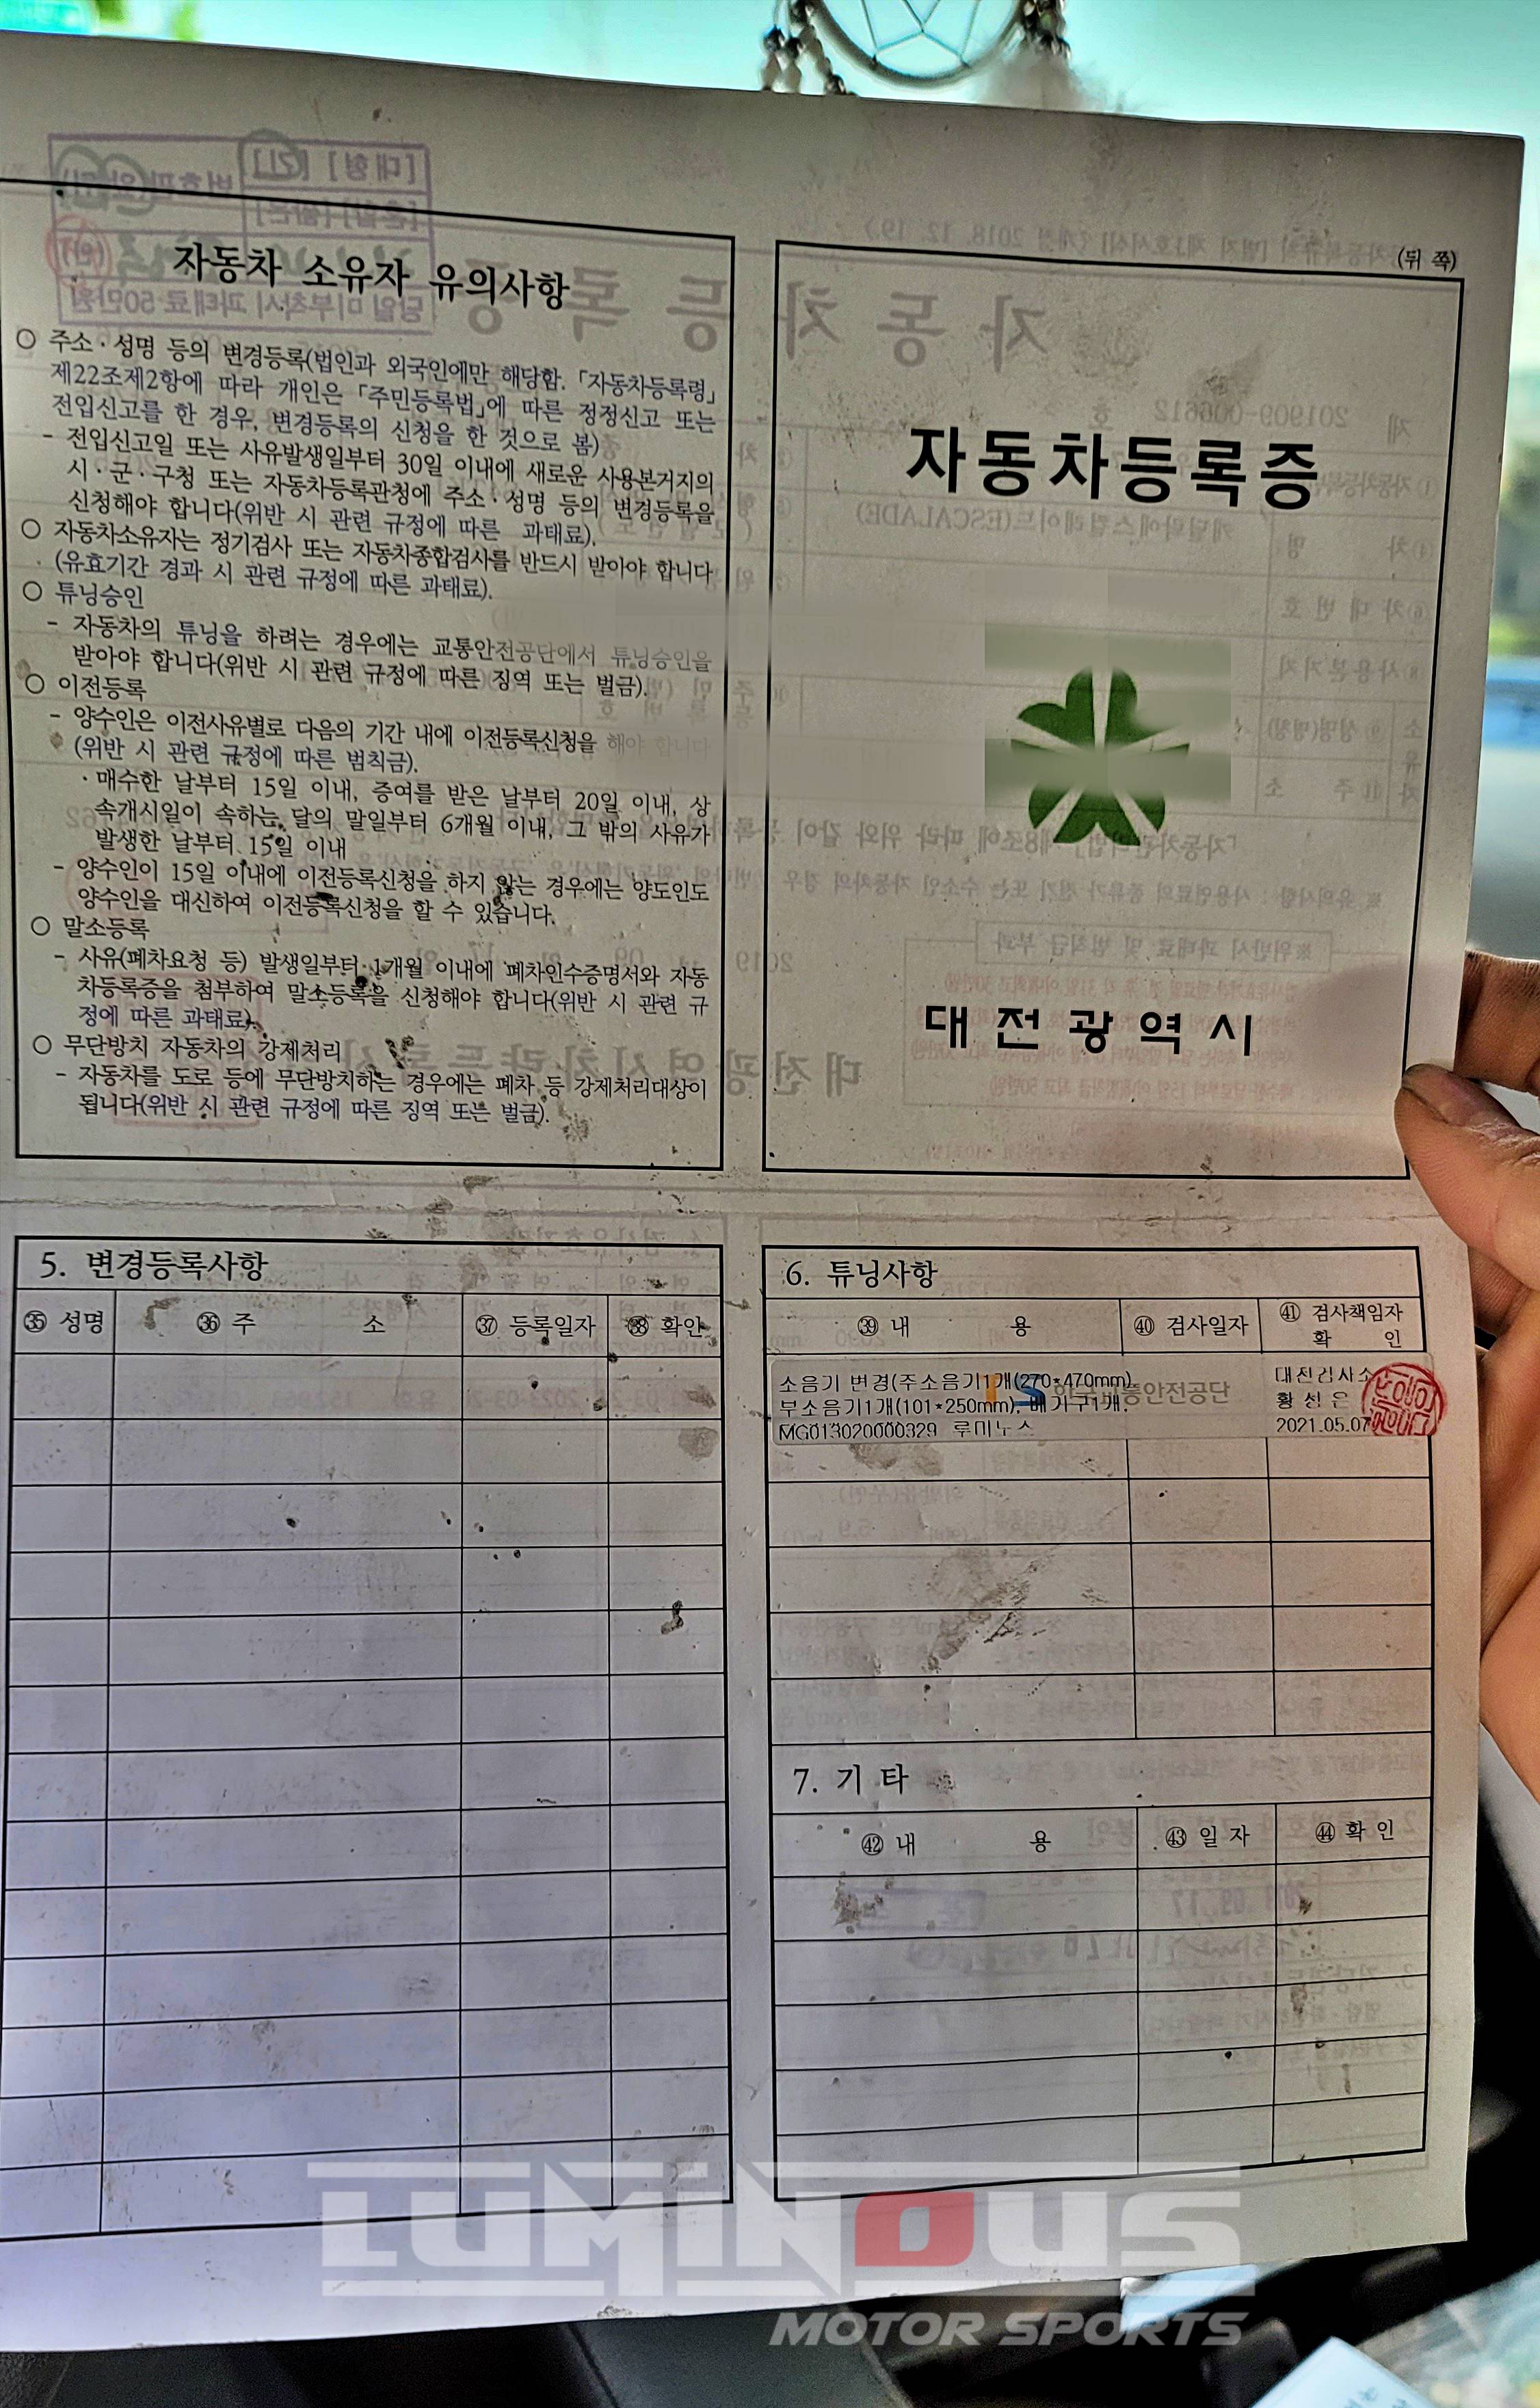 (뒤 쪽)
자동차 소유자 유의사항
○ 주소·성명 등의 변경등록(법인과 외국인에만 해당함. 「자동차등록령」
제22조제2항에 따라 개인은 「주민등록법」에 따른 정정신고 또는
전입신고를 한 경우, 변경등록의 신청을 한 것으로 봄)
- 전입신고일 또는 사유발생일부터 30일 이내에 새로운 사용본거지의
시·군·구청 또는 자동차등록관청에 주소·성명 등의 변경등록을
신청해야 합니다(위반 시 관련 규정에 따른 과태료).
○ 자동차소유자는 정기검사 또는 자동차종합검사를 반드시 받아야 합니다
(유효기간 경과 시 관련 규정에 따른 과태료).
○ 튜닝승인
- 자동차의 튜닝을 하려는 경우에는 교통안전공단에서 튜닝승인을
받아야 합니다(위반 시 관련 규정에 따른 징역 또는 벌금).
○ 이전등록
- 양수인은 이전사유별로 다음의 기간 내에 이전등록신청을 해야 합니다
(위반 시 관련 규정에 따른 범칙금).
· 매수한 날부터 15일 이내, 증여를 받은 날부터 20일 이내, 상
속개시일이 속하는 달의 말일부터 6개월 이내, 그 밖의 사유가
발생한 날부터 15일 이내
- 양수인이 15일 이내에 이전등록신청을 하지 않는 경우에는 양도인도
양수인을 대신하여 이전등록신청을 할 수 있습니다.
○ 말소등록
- 사유(폐차요청 등) 발생일부터 1개월 이내에 폐차인수증명서와 자동
차등록증을 첨부하여 말소등록을 신청해야 합니다(위반 시 관련 규
정에 따른 과태료).
○ 무단방치 자동차의 강제처리
- 자동차를 도로 등에 무단방치하는 경우에는 폐차 등 강제처리대상이
됩니다(위반 시 관련 규정에 따른 징역 또는 벌금).
자동차등록증
대전광역시
5. 변경등록사항
㉟ 성명 ㊱ 주 소 ㊲ 등록일자 ㊳ 확인
6. 튜닝사항
㊴ 내 용 ㊵ 검사일자 ㊶ 검사책임자
확 인
소음기 변경(주소음기1개(270*470mm),
부소음기1개(101*250mm), 배기구1개.
MG013020000329 루미노스
한국교통안전공단
대전검사소
황성은
2021.05.07
7. 기 타
㊷ 내 용 ㊸ 일 자 ㊹ 확 인
LUMINOUS
MOTOR SPORTS